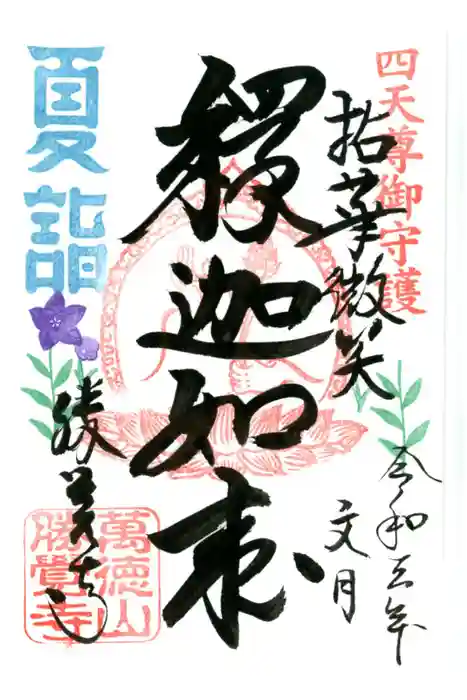 四天尊御守護
拈華微笑
令和三年
文月
釋迦如来
夏詣
勝覚寺
萬徳山
勝覺寺